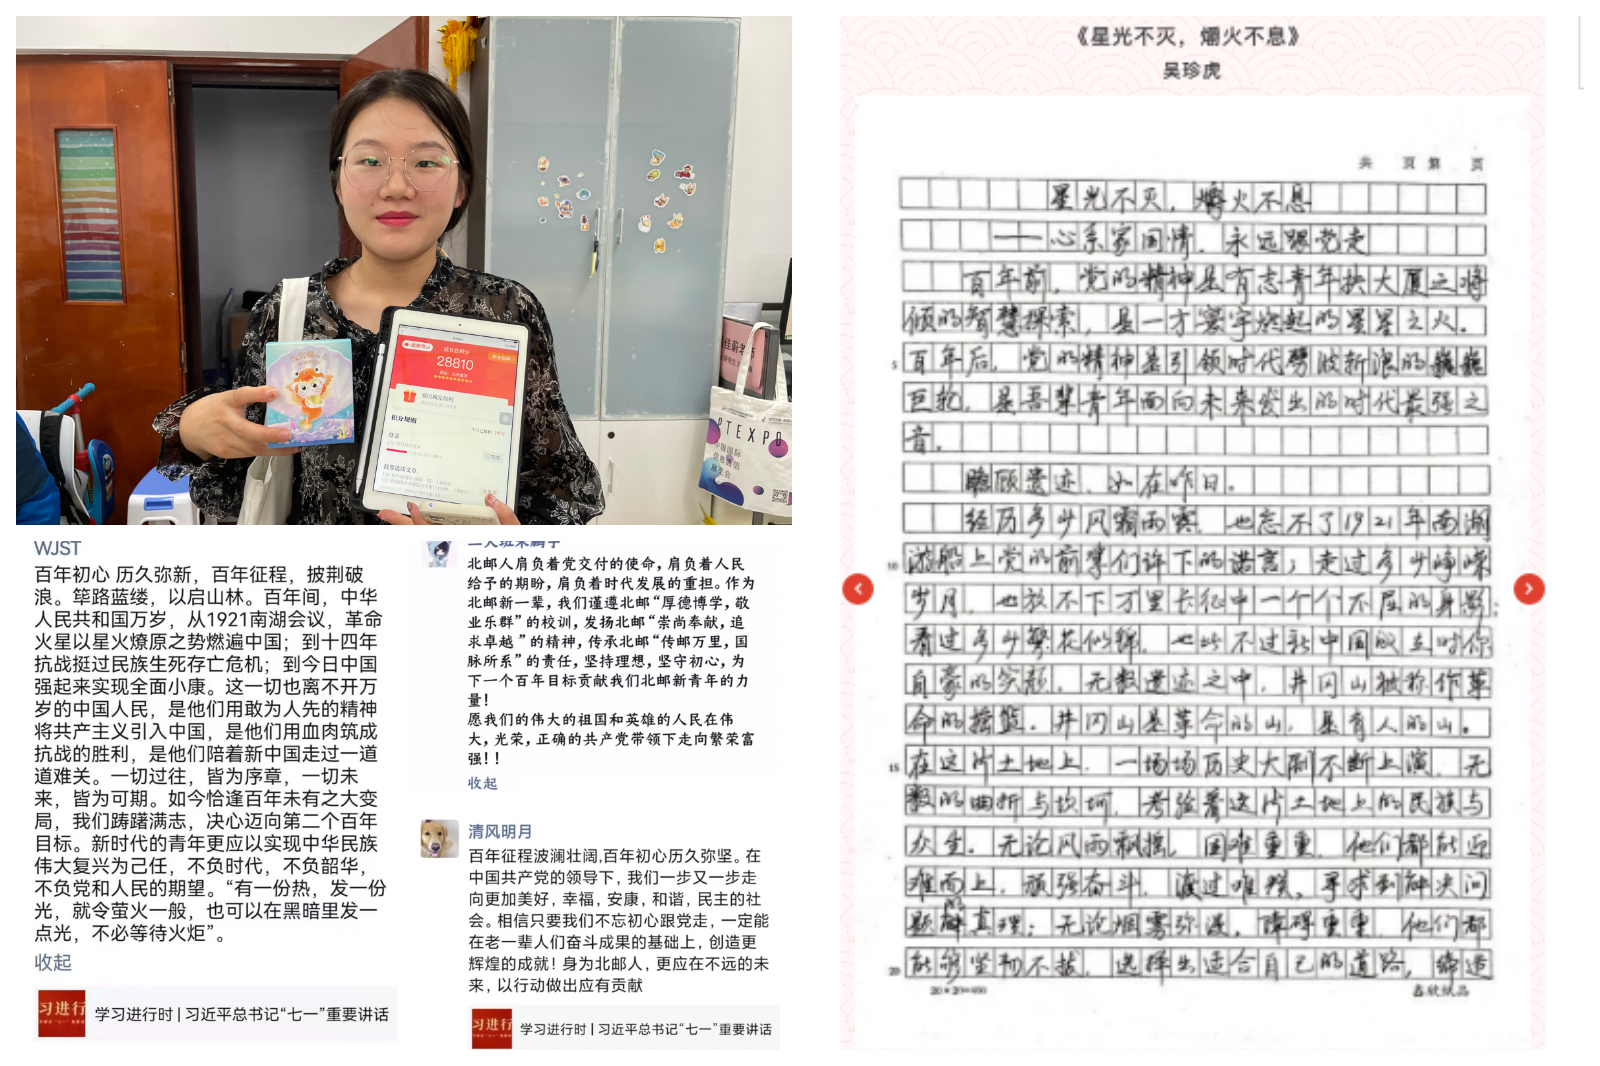 成长总积分
28810
积分规则
登录
我要选读文章
佳蔚老师
PTEXPO
中国国际
信息通信
展览会
WJST
百年初心 历久弥新，百年征程，披荆破
浪。筚路蓝缕，以启山林。百年间，中华
人民共和国万岁，从1921南湖会议，革命
火星以星火燎原之势燃遍中国；到十四年
抗战挺过民族生死存亡危机；到今日中国
强起来实现全面小康。这一切也离不开万
岁的中国人民，是他们用敢为人先的精神
将共产主义引入中国，是他们用血肉筑成
抗战的胜利，是他们陪着新中国走过一道
道难关。一切过往，皆为序章，一切未
来，皆为可期。如今恰逢百年未有之大变
局，我们踌躇满志，决心迈向第二个百年
目标。新时代的青年更应以实现中华民族
伟大复兴为己任，不负时代，不负韶华，
不负党和人民的期望。“有一份热，发一份
光，就令萤火一般，也可以在黑暗里发一
点光，不必等待火炬”。
收起
习进行
学习进行时 | 习近平总书记“七一”重要讲话
北邮人肩负着党交付的使命，肩负着人民
给予的期盼，肩负着时代发展的重担。作为
北邮新一辈，我们谨遵北邮“厚德博学，敬
业乐群”的校训，发扬北邮“崇尚奉献，追
求卓越”的精神，传承北邮“传邮万里，国
脉所系”的责任，坚持理想，坚守初心，为
下一个百年目标贡献我们北邮新青年的力
量！
愿我们的伟大的祖国和英雄的人民在伟
大，光荣，正确的共产党带领下走向繁荣富
强！！
收起
清风明月
百年征程波澜壮阔,百年初心历久弥坚。在
中国共产党的领导下，我们一步又一步走
向更加美好，幸福，安康，和谐，民主的社
会。相信只要我们不忘初心跟党走，一定能
在老一辈人们奋斗成果的基础上，创造更
辉煌的成就！身为北邮人，更应在不远的未
来，以行动做出应有贡献
习进行
学习进行时 | 习近平总书记“七一”重要讲话
《星光不灭，爝火不息》
吴珍虎
共 页 第 页
星光不灭，爝火不息
——心系家国情，永远跟党走
百年前，党的精神是有志青年扶大厦之将
倾的智慧探索，是一方寰宇燃起的星星之火。
5
百年后，党的精神是引领时代劈波斩浪的巍巍
巨轮，是吾辈青年面向未来发出的时代最强之
音。
瞻顾遗迹，如在昨日。
经历多少风霜雨雪，也忘不了1921年南湖
10
游船上党的前辈们许下的诺言；走过多少峥嵘
岁月，也放不下万里长征中一个个不屈的身影；
看过多少繁花似锦，也比不过新中国成立时你
自豪的笑颜，无数遗迹之中，井冈山被称作革
命的摇篮。井冈山是革命的山，是有人的山。
15
在这片土地上，一场场历史大剧不断上演，无
数的曲折与坎坷，考验着这片土地上的民族与
众生。无论风雨飘摇，国难重重，他们都能迎
难而上，顽强奋斗，渡过难关，寻求到解决问
题的真理；无论烟雾弥漫，障碍重重，他们都
20
能够坚韧不拔，选择出适合自己的道路，缔造
20×20=400